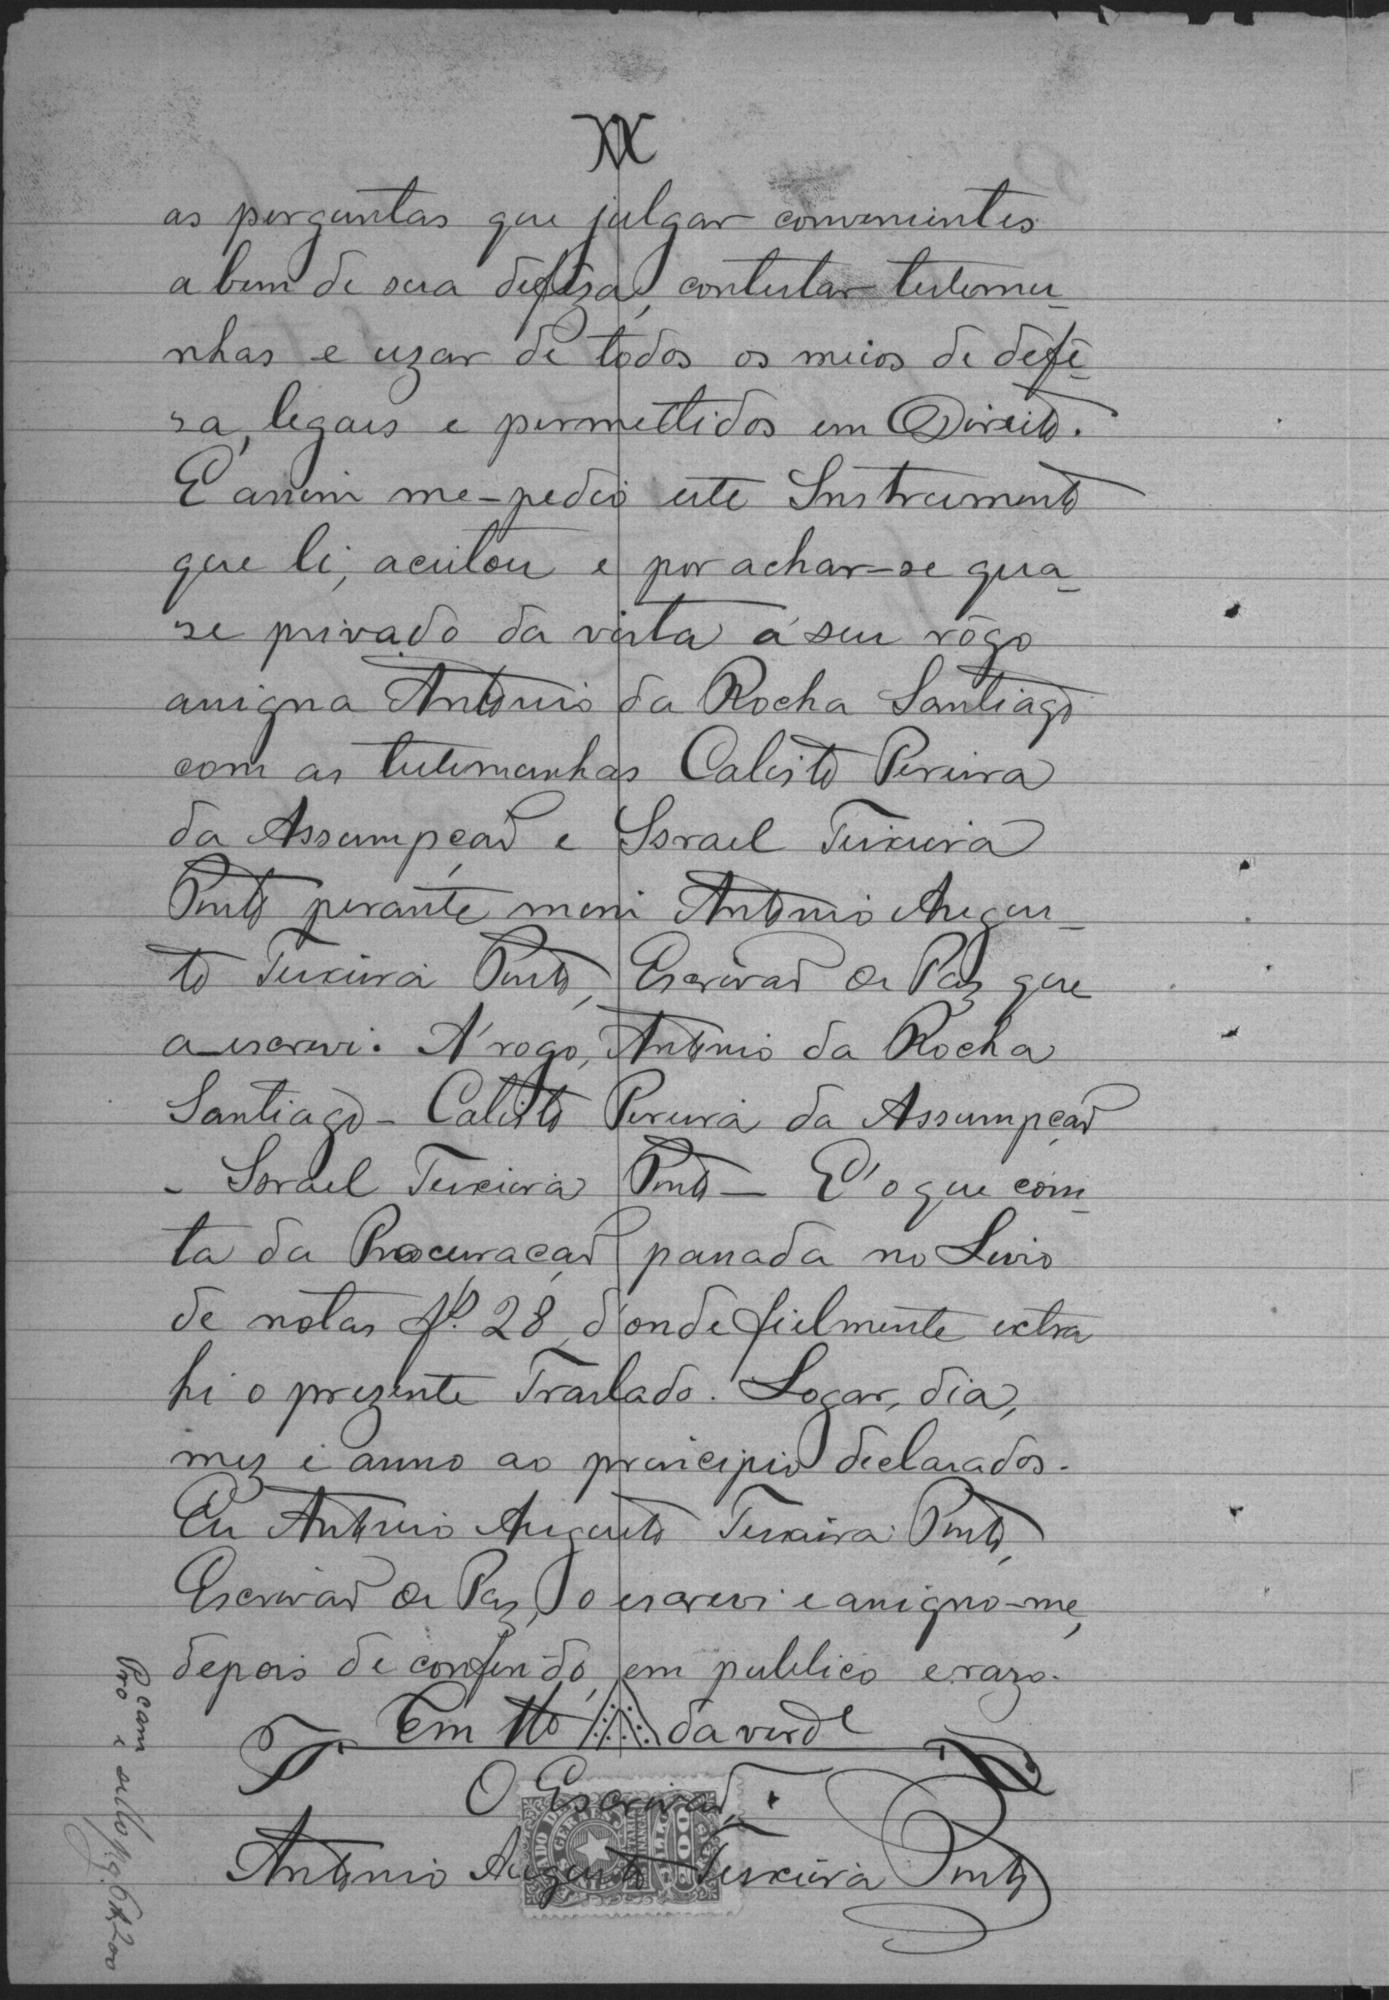 as perguntas que julgar convenientes
a bem de sua defêza, contestar testemu-
nhas e uzar de todos os meios de defê-
sa, legais e permettidos em Direito.
E assim me-pedio este Instrumento
que li, aceitou e por achar-se qua-
se privado da vista á seu rôgo
assigna Antonio da Rocha Santiago
com as testemunhas Calisto Pereira
da Assumpção e Israel Teixeira
Pinto perante mim Antonio Augus-
to Teixeira Pinto, Escrivão de Paz que
a escrevi. A' rogo, Antonio da Rocha
Santiago - Calisto Pereira da Assumpção
- Israel Teixeira Pinto - E' o que cons-
ta da Procuração passada no Livro
de notas fl. 28, d'onde fielmente extra
hi o prezente Traslado. Logar, dia,
mez e anno ao principio declarados.
Eu Antonio Augusto Teixeira Pinto,
Escrivão de Paz, o escrevi e assigno-me,
depois de conferido, em publico e razo.
Em tto da verde
O Escrivão,
Antonio Augusto Teixeira Pinto